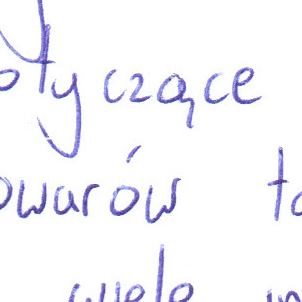 otyczące
owarów to
wiele in